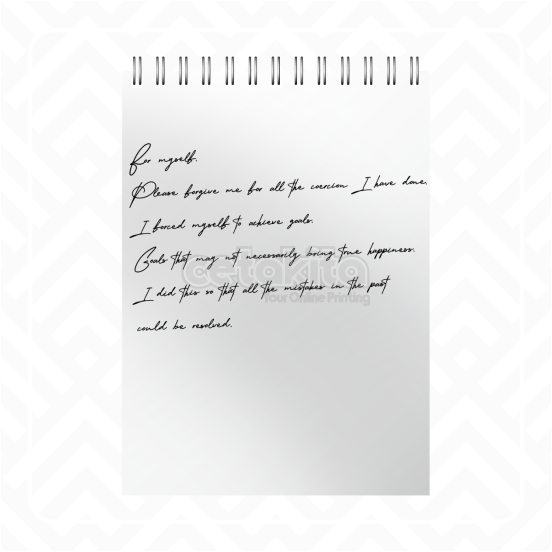 For myself.
Please forgive me for all the coercion I have done.
I forced myself to achieve goals.
Goals that may not necessarily bring true happiness.
cetakita
Your Online Printing
I did this so that all the mistakes in the past
could be resolved.